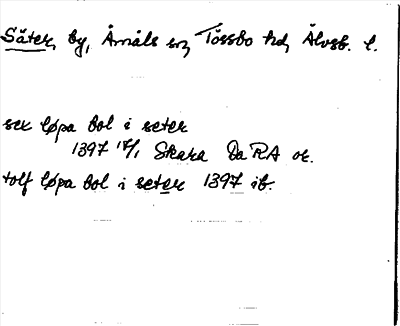 Säter, by, Åmåls sn, Tössbo hd, Älvsb. l.
sex løpa bol i seter
1397 17/1 Skara Da RA or.
tolf løpa bol i seter 1397 ib.